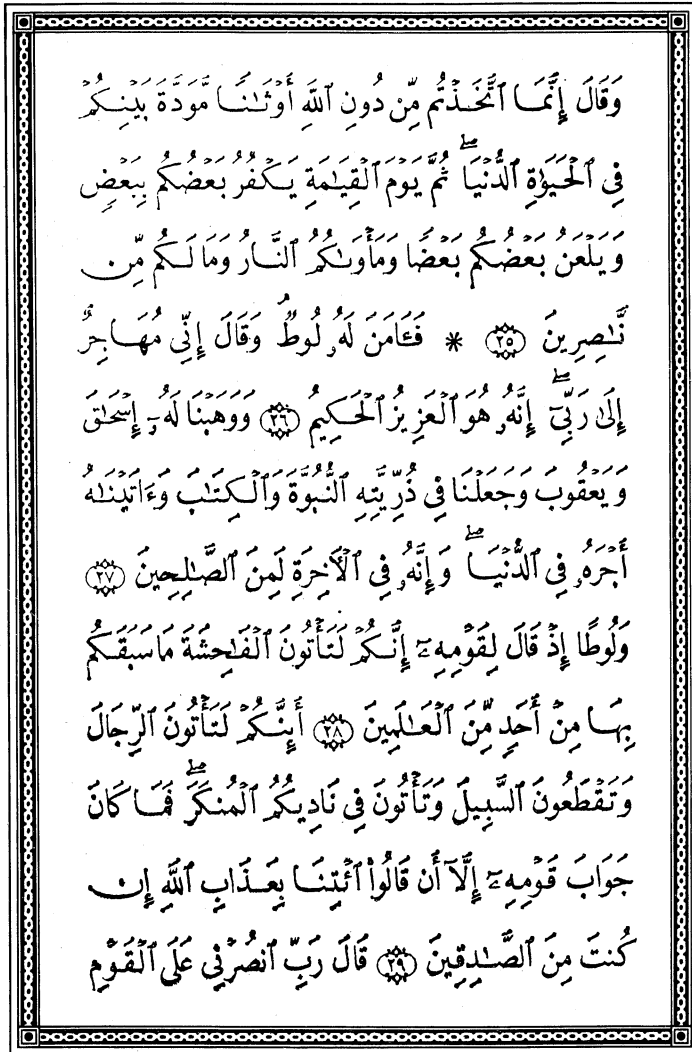 وَقَالَ إِنَّمَا ٱتَّخَذْتُم مِّن دُونِ ٱللَّهِ أَوْثَٰنًا مَّوَدَّةَ بَيْنِكُمْ
فِى ٱلْحَيَوٰةِ ٱلدُّنْيَا ۖ ثُمَّ يَوْمَ ٱلْقِيَٰمَةِ يَكْفُرُ بَعْضُكُم بِبَعْضٍ
وَيَلْعَنُ بَعْضُكُم بَعْضًا وَمَأْوَىٰكُمُ ٱلنَّارُ وَمَا لَكُم مِّن
نَّٰصِرِينَ ﴿٢٥﴾ * فَـَٔامَنَ لَهُۥ لُوطٌ ۘ وَقَالَ إِنِّى مُهَاجِرٌ
إِلَىٰ رَبِّىٓ ۖ إِنَّهُۥ هُوَ ٱلْعَزِيزُ ٱلْحَكِيمُ ﴿٢٦﴾ وَوَهَبْنَا لَهُۥٓ إِسْحَٰقَ
وَيَعْقُوبَ وَجَعَلْنَا فِى ذُرِّيَّتِهِ ٱلنُّبُوَّةَ وَٱلْكِتَٰبَ وَءَاتَيْنَٰهُ
أَجْرَهُۥ فِى ٱلدُّنْيَا ۖ وَإِنَّهُۥ فِى ٱلْـَٔاخِرَةِ لَمِنَ ٱلصَّٰلِحِينَ ﴿٢٧﴾
وَلُوطًا إِذْ قَالَ لِقَوْمِهِۦٓ إِنَّكُمْ لَتَأْتُونَ ٱلْفَٰحِشَةَ مَا سَبَقَكُم
بِهَا مِنْ أَحَدٍ مِّنَ ٱلْعَٰلَمِينَ ﴿٢٨﴾ أَئِنَّكُمْ لَتَأْتُونَ ٱلرِّجَالَ
وَتَقْطَعُونَ ٱلسَّبِيلَ وَتَأْتُونَ فِى نَادِيكُمُ ٱلْمُنكَرَ ۖ فَمَا كَانَ
جَوَابَ قَوْمِهِۦٓ إِلَّآ أَن قَالُوا۟ ٱئْتِنَا بِعَذَابِ ٱللَّهِ إِن
كُنتَ مِنَ ٱلصَّٰدِقِينَ ﴿٢٩﴾ قَالَ رَبِّ ٱنصُرْنِى عَلَى ٱلْقَوْمِ